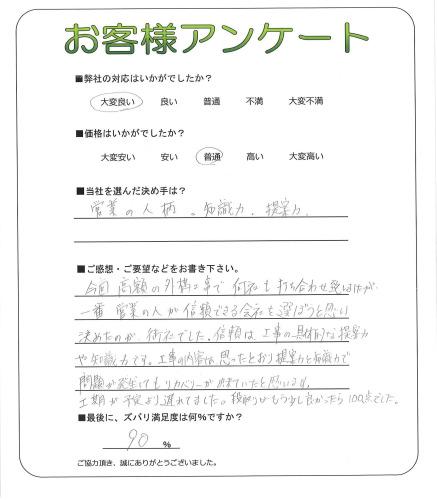 お客様アンケート
■弊社の対応はいかがでしたか？
大変良い 良い 普通 不満 大変不満
■価格はいかがでしたか？
大変安い 安い 普通 高い 大変高い
■当社を選んだ決め手は？
営業の人柄。知識力、提案力、
■ご感想・ご要望などをお書き下さい。
今回高額の外構工事で何社も打ち合わせ致しましたが、
一番営業の人が信頼できる会社を選ぼうと思い
決めたのが御社でした。信頼は工事の具体的な提案力
や知識力です。工事の内容は思ったとおり提案力と知識力で
問題が発生してもリカバリーが出来ていたと思います。
工期が予定より遅れてました。段取りがもう少し良かったら100点でした。
■最後に、ズバリ満足度は何％ですか？
90 ％
ご協力頂き、誠にありがとうございました。